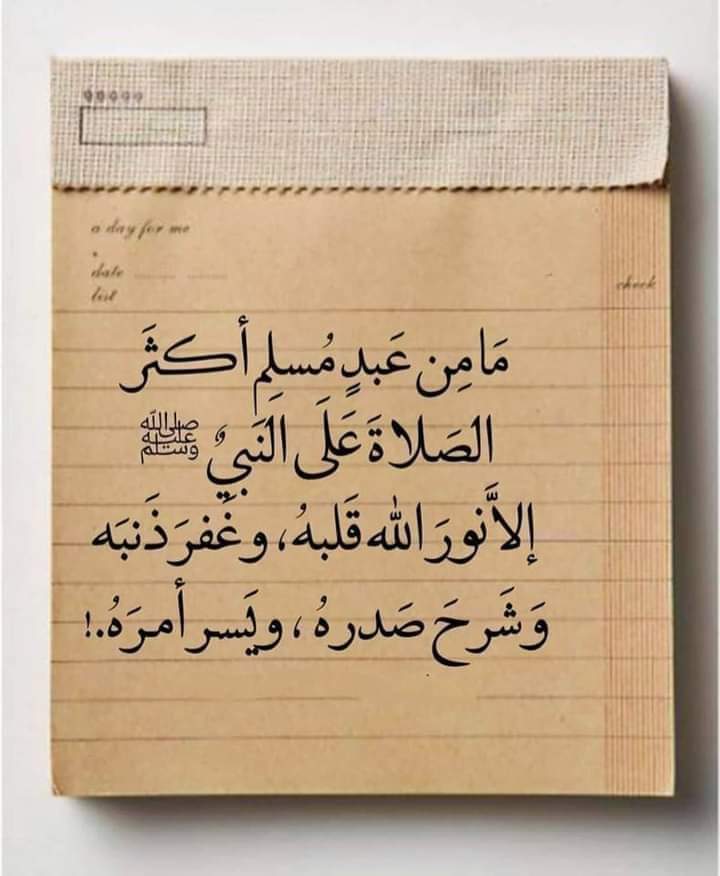 a day for me
date
list
check
مَا مِن عَبدٍ مُسلِمٍ أكثَر
الصَلاةَ عَلَى النَبيُ ﷺ
إلاَّ نورَ الله قَلبهُ، وغَفرَ ذَنبَه
وَشَرحَ صَدرهُ، ويَسر أمرَهُ.!